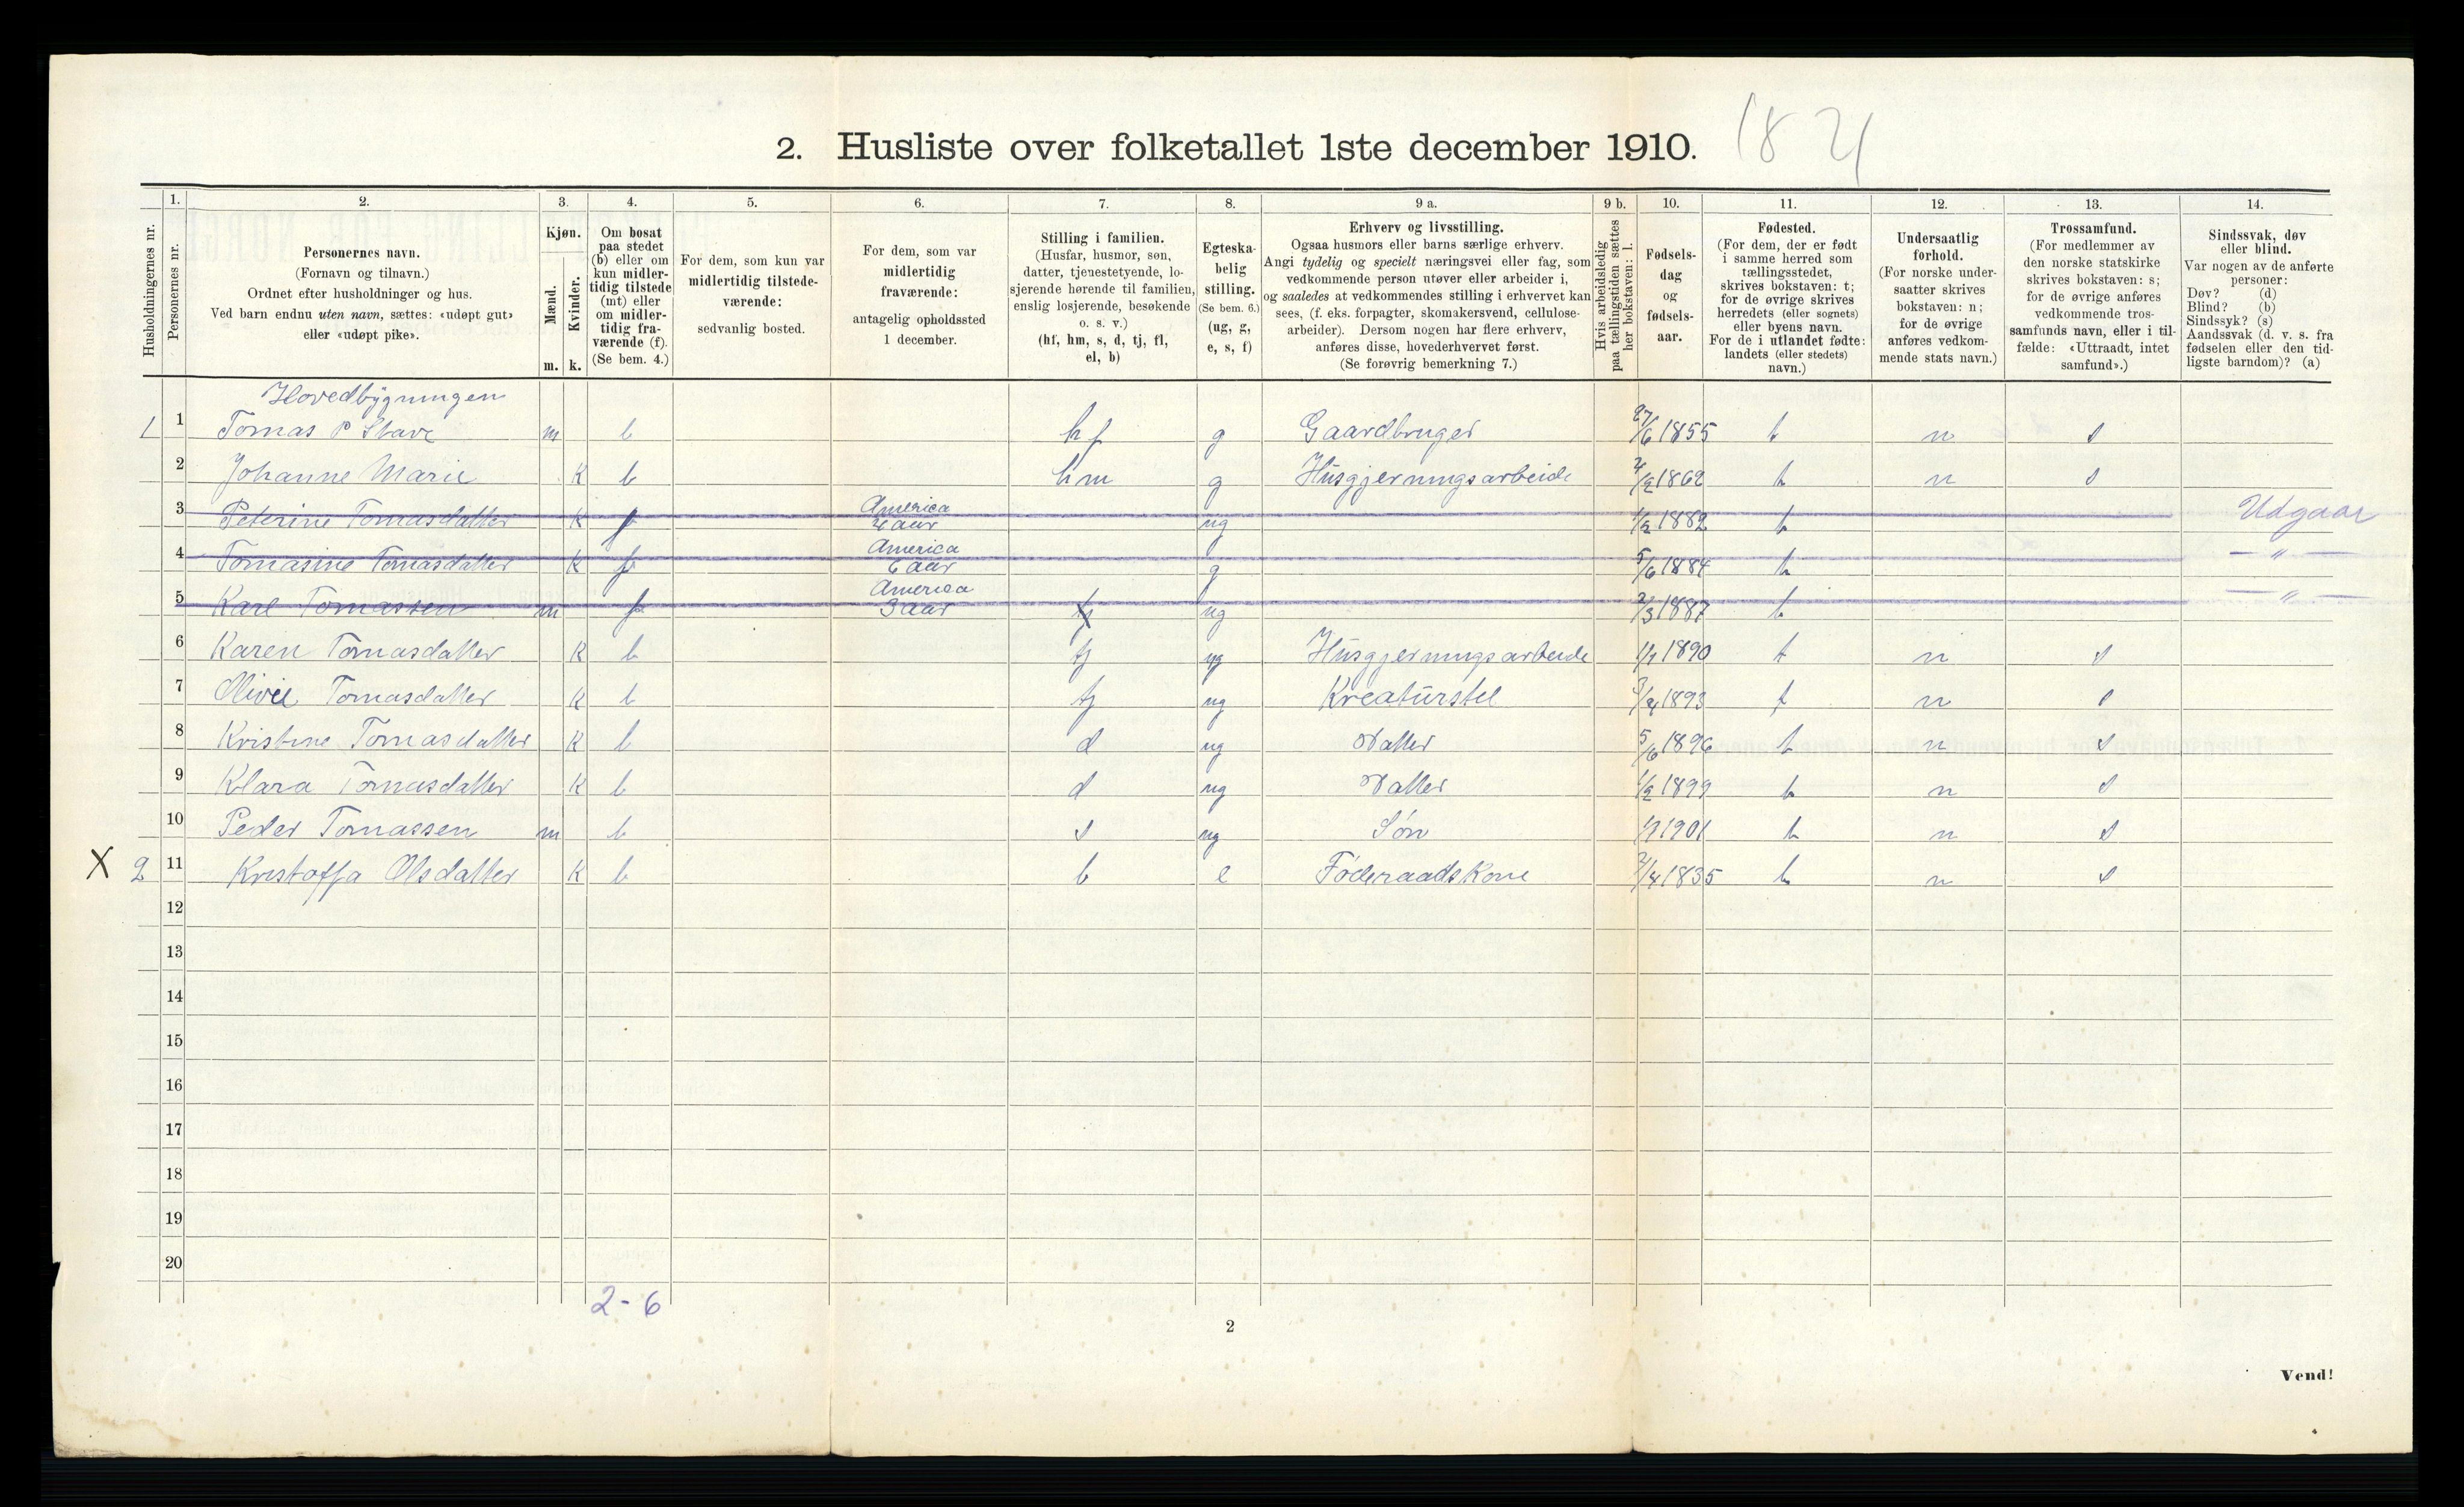 2. Husliste over folketallet 1ste december 1910. 182
Husholdningernes nr.
1. Personernes nr.
2. Personernes navn.
(Fornavn og tilnavn.)
Ordnet efter husholdninger og hus.
Ved barn endnu uten navn, sættes: «udøpt gut»
eller «udøpt pike».
3. Kjøn.
Mænd. m.
Kvinder. k.
4. Om bosat
paa stedet
(b) eller om
kun midler-
tidig tilstede
(mt) eller
om midler-
tidig fra-
værende (f).
(Se bem. 4.)
5. For dem, som kun var
midlertidig tilstede-
værende:
sedvanlig bosted.
6. For dem, som var
midlertidig
fraværende:
antagelig opholdssted
1 december.
7. Stilling i familien.
(Husfar, husmor, søn,
datter, tjenestetyende, lo-
sjerende hørende til familien,
enslig losjerende, besøkende
o. s. v.)
(hf, hm, s, d, tj, fl,
el, b)
8. Egteska-
belig
stilling.
(Se bem. 6.)
(ug, g,
e, s, f)
9 a. Erhverv og livsstilling.
Ogsaa husmors eller barns særlige erhverv.
Angi tydelig og specielt næringsvei eller fag, som
vedkommende person utøver eller arbeider i,
og saaledes at vedkommendes stilling i erhvervet kan
sees, (f. eks. forpagter, skomakersvend, cellulose-
arbeider). Dersom nogen har flere erhverv,
anføres disse, hovederhvervet først.
(Se forøvrig bemerkning 7.)
9 b. Hvis arbeidsledig
paa tællingstiden sættes
her bokstaven: l.
10. Fødsels-
dag
og
fødsels-
aar.
11. Fødested.
(For dem, der er født
i samme herred som
tællingsstedet,
skrives bokstaven: t;
for de øvrige skrives
herredets (eller sognets)
eller byens navn.
For de i utlandet fødte:
landets (eller stedets)
navn.)
12. Undersaatlig
forhold.
(For norske under-
saatter skrives
bokstaven: n;
for de øvrige
anføres vedkom-
mende stats navn.)
13. Trossamfund.
(For medlemmer av
den norske statskirke
skrives bokstaven: s;
for de øvrige anføres
vedkommende tros-
samfunds navn, eller i til-
fælde: «Uttraadt, intet
samfund».)
14. Sindssvak, døv
eller blind.
Var nogen av de anførte
personer:
Døv? (d)
Blind? (b)
Sindssyk? (s)
Aandssvak (d. v. s. fra
fødselen eller den tid-
ligste barndom)? (a)
Hovedbygningen
1 1 Tomas P Stave m b hf g Gaardbruger 27/6 1855 t n s
2 Johanne Marie K b hm g Husgjerningsarbeide 4/2 1862 t n s
3 Peterine Tomasdatter K f America 4 aar ug 1/2 1882 t Udgaar
4 Tomasine Tomasdatter K f America 6 aar g 5/6 1884 t — " —
5 Karl Tomassen m f America 3 aar tj ug 2/3 1887 t — " —
6 Karen Tomasdatter K b tj ug Husgjerningsarbeide 1/1 1890 t n s
7 Olivie Tomasdatter K b tj ug Kreaturstel 3/4 1893 t n s
8 Kristine Tomasdatter K b d ug Datter 5/6 1896 t n s
9 Klara Tomasdatter K b d ug Datter 1/2 1899 t n s
10 Peder Tomassen m b s ug Søn 1/1 1901 t n s
X 2 11 Kristoffa Olsdatter K b b e Føderaadskone 2/4 1835 t n s
12
13
14
15
16
17
18
19
20
2-6
2
Vend!